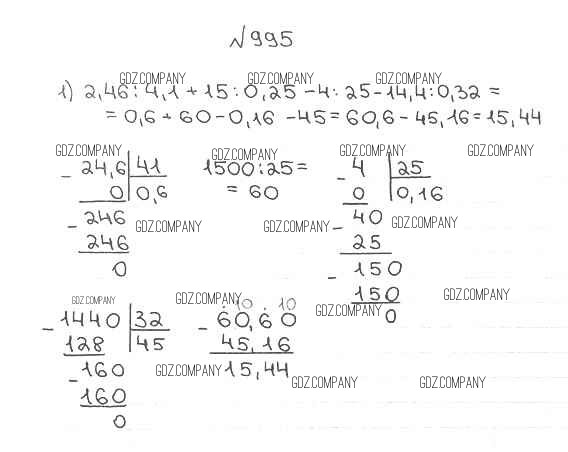 №995
GDZ.COMPANY GDZ.COMPANY GDZ.COMPANY
1) 2,46:4,1+15:0,25-4:25-14,4:0,32=
=0,6+60-0,16-45=60,6-45,16=15,44
GDZ.COMPANY GDZ.COMPANY GDZ.COMPANY GDZ.COMPANY
- 24,6 | 41 1500:25= - 4 | 25
0 | 0,6 =60 0 | 0,16
- 246 GDZ.COMPANY GDZ.COMPANY - 40 GDZ.COMPANY
246 25
0 - 150
GDZ.COMPANY GDZ.COMPANY 150 GDZ.COMPANY
10 10 GDZ.COMPANY 0
- 1440 | 32 - 60,60
128 | 45 45,16
- 160 GDZ.COMPANY 15,44
160 GDZ.COMPANY GDZ.COMPANY
0